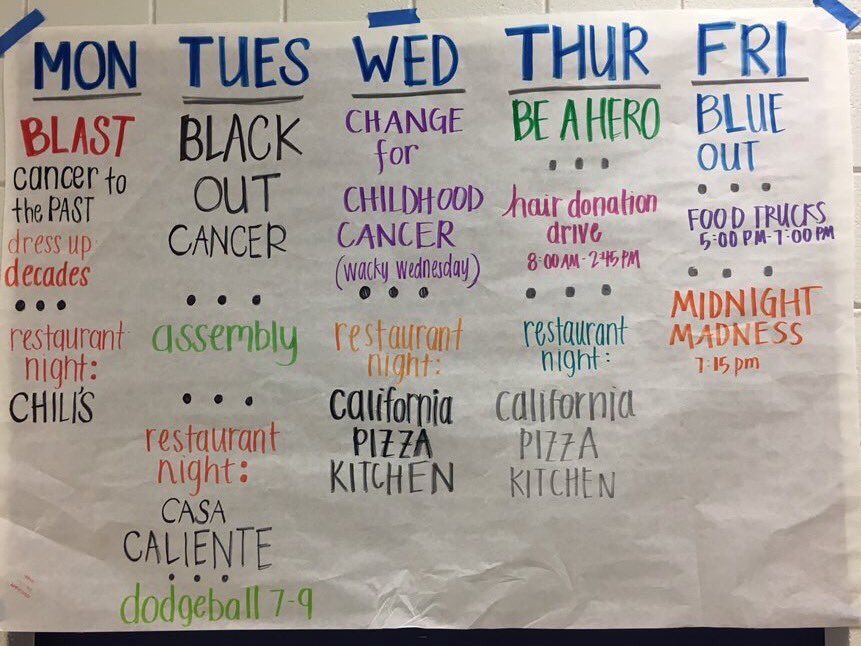 MON
BLAST
cancer to
the PAST
dress up
decades
restaurant
night:
CHILI'S
TUES
BLACK
OUT
CANCER
assembly
restaurant
night:
CASA
CALIENTE
dodgeball 7-9
WED
CHANGE
for
CHILDHOOD
CANCER
(wacky wednesday)
restaurant
night:
California
PIZZA
KITCHEN
THUR
BE A HERO
hair donation
drive
8:00 AM - 2:45 PM
restaurant
night:
California
PIZZA
KITCHEN
FRI
BLUE
OUT
FOOD TRUCKS
5:00 PM - 7:00 PM
MIDNIGHT
MADNESS
7:15 pm